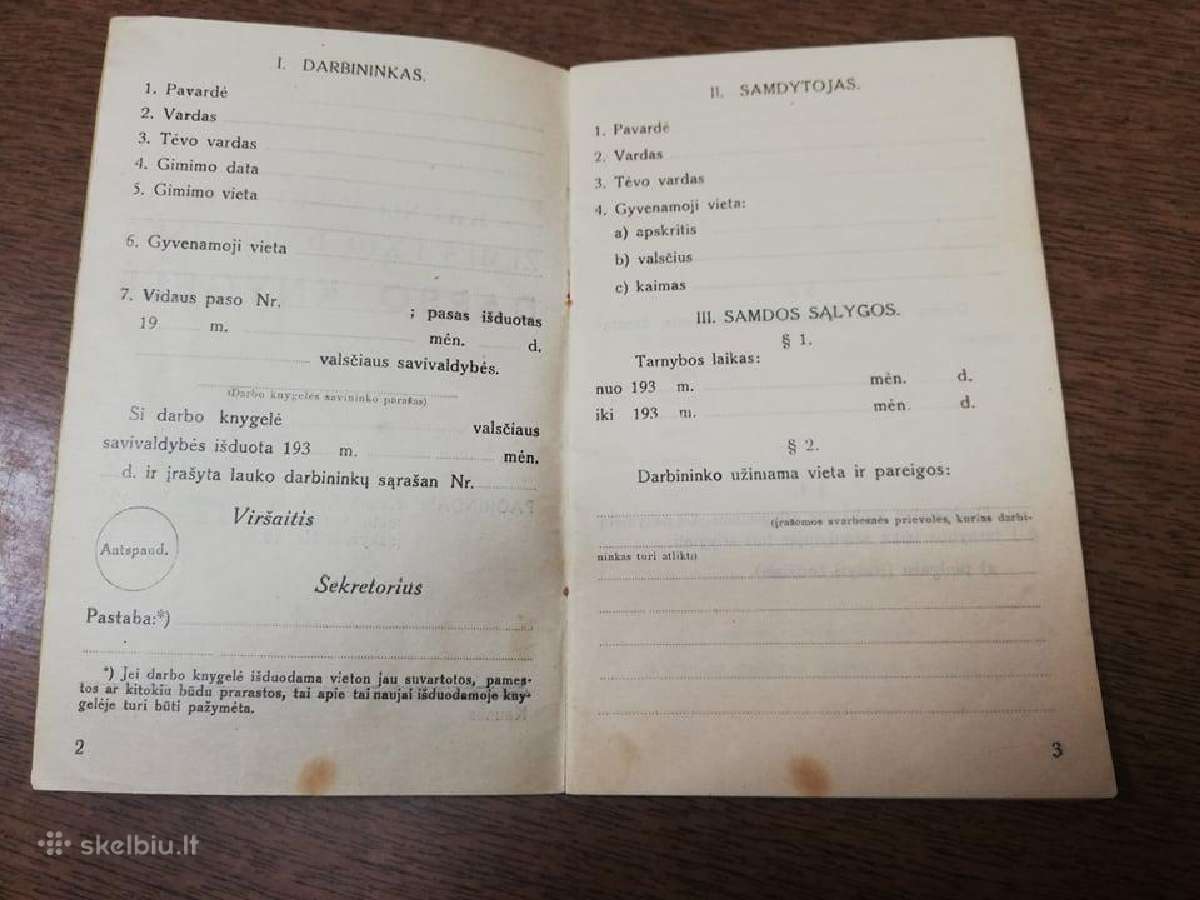 I. DARBININKAS.
1. Pavardė
2. Vardas
3. Tėvo vardas
4. Gimimo data
5. Gimimo vieta
6. Gyvenamoji vieta
7. Vidaus paso Nr. ; pasas išduotas
19 m. mėn. d.
valsčiaus savivaldybės.
(Darbo knygelės savininko parašas)
Ši darbo knygelė valsčiaus
savivaldybės išduota 193 m. mėn.
d. ir įrašyta lauko darbininkų sąrašan Nr.
Viršaitis
Antspaud.
Sekretorius
Pastaba:*)
*) Jei darbo knygelė išduodama vieton jau suvartotos, pames-
tos ar kitokiu būdu prarastos, tai apie tai naujai išduodamoje kny-
gelėje turi būti pažymėta.
2
II. SAMDYTOJAS.
1. Pavardė
2. Vardas
3. Tėvo vardas
4. Gyvenamoji vieta:
a) apskritis
b) valsčius
c) kaimas
III. SAMDOS SĄLYGOS.
§ 1.
Tarnybos laikas:
nuo 193 m. mėn. d.
iki 193 m. mėn. d.
§ 2.
Darbininko užiniama vieta ir pareigos:
(įrašomos svarbesnės prievolės, kurias darbi-
ninkas turi atlikti)
3
skelbiu.lt